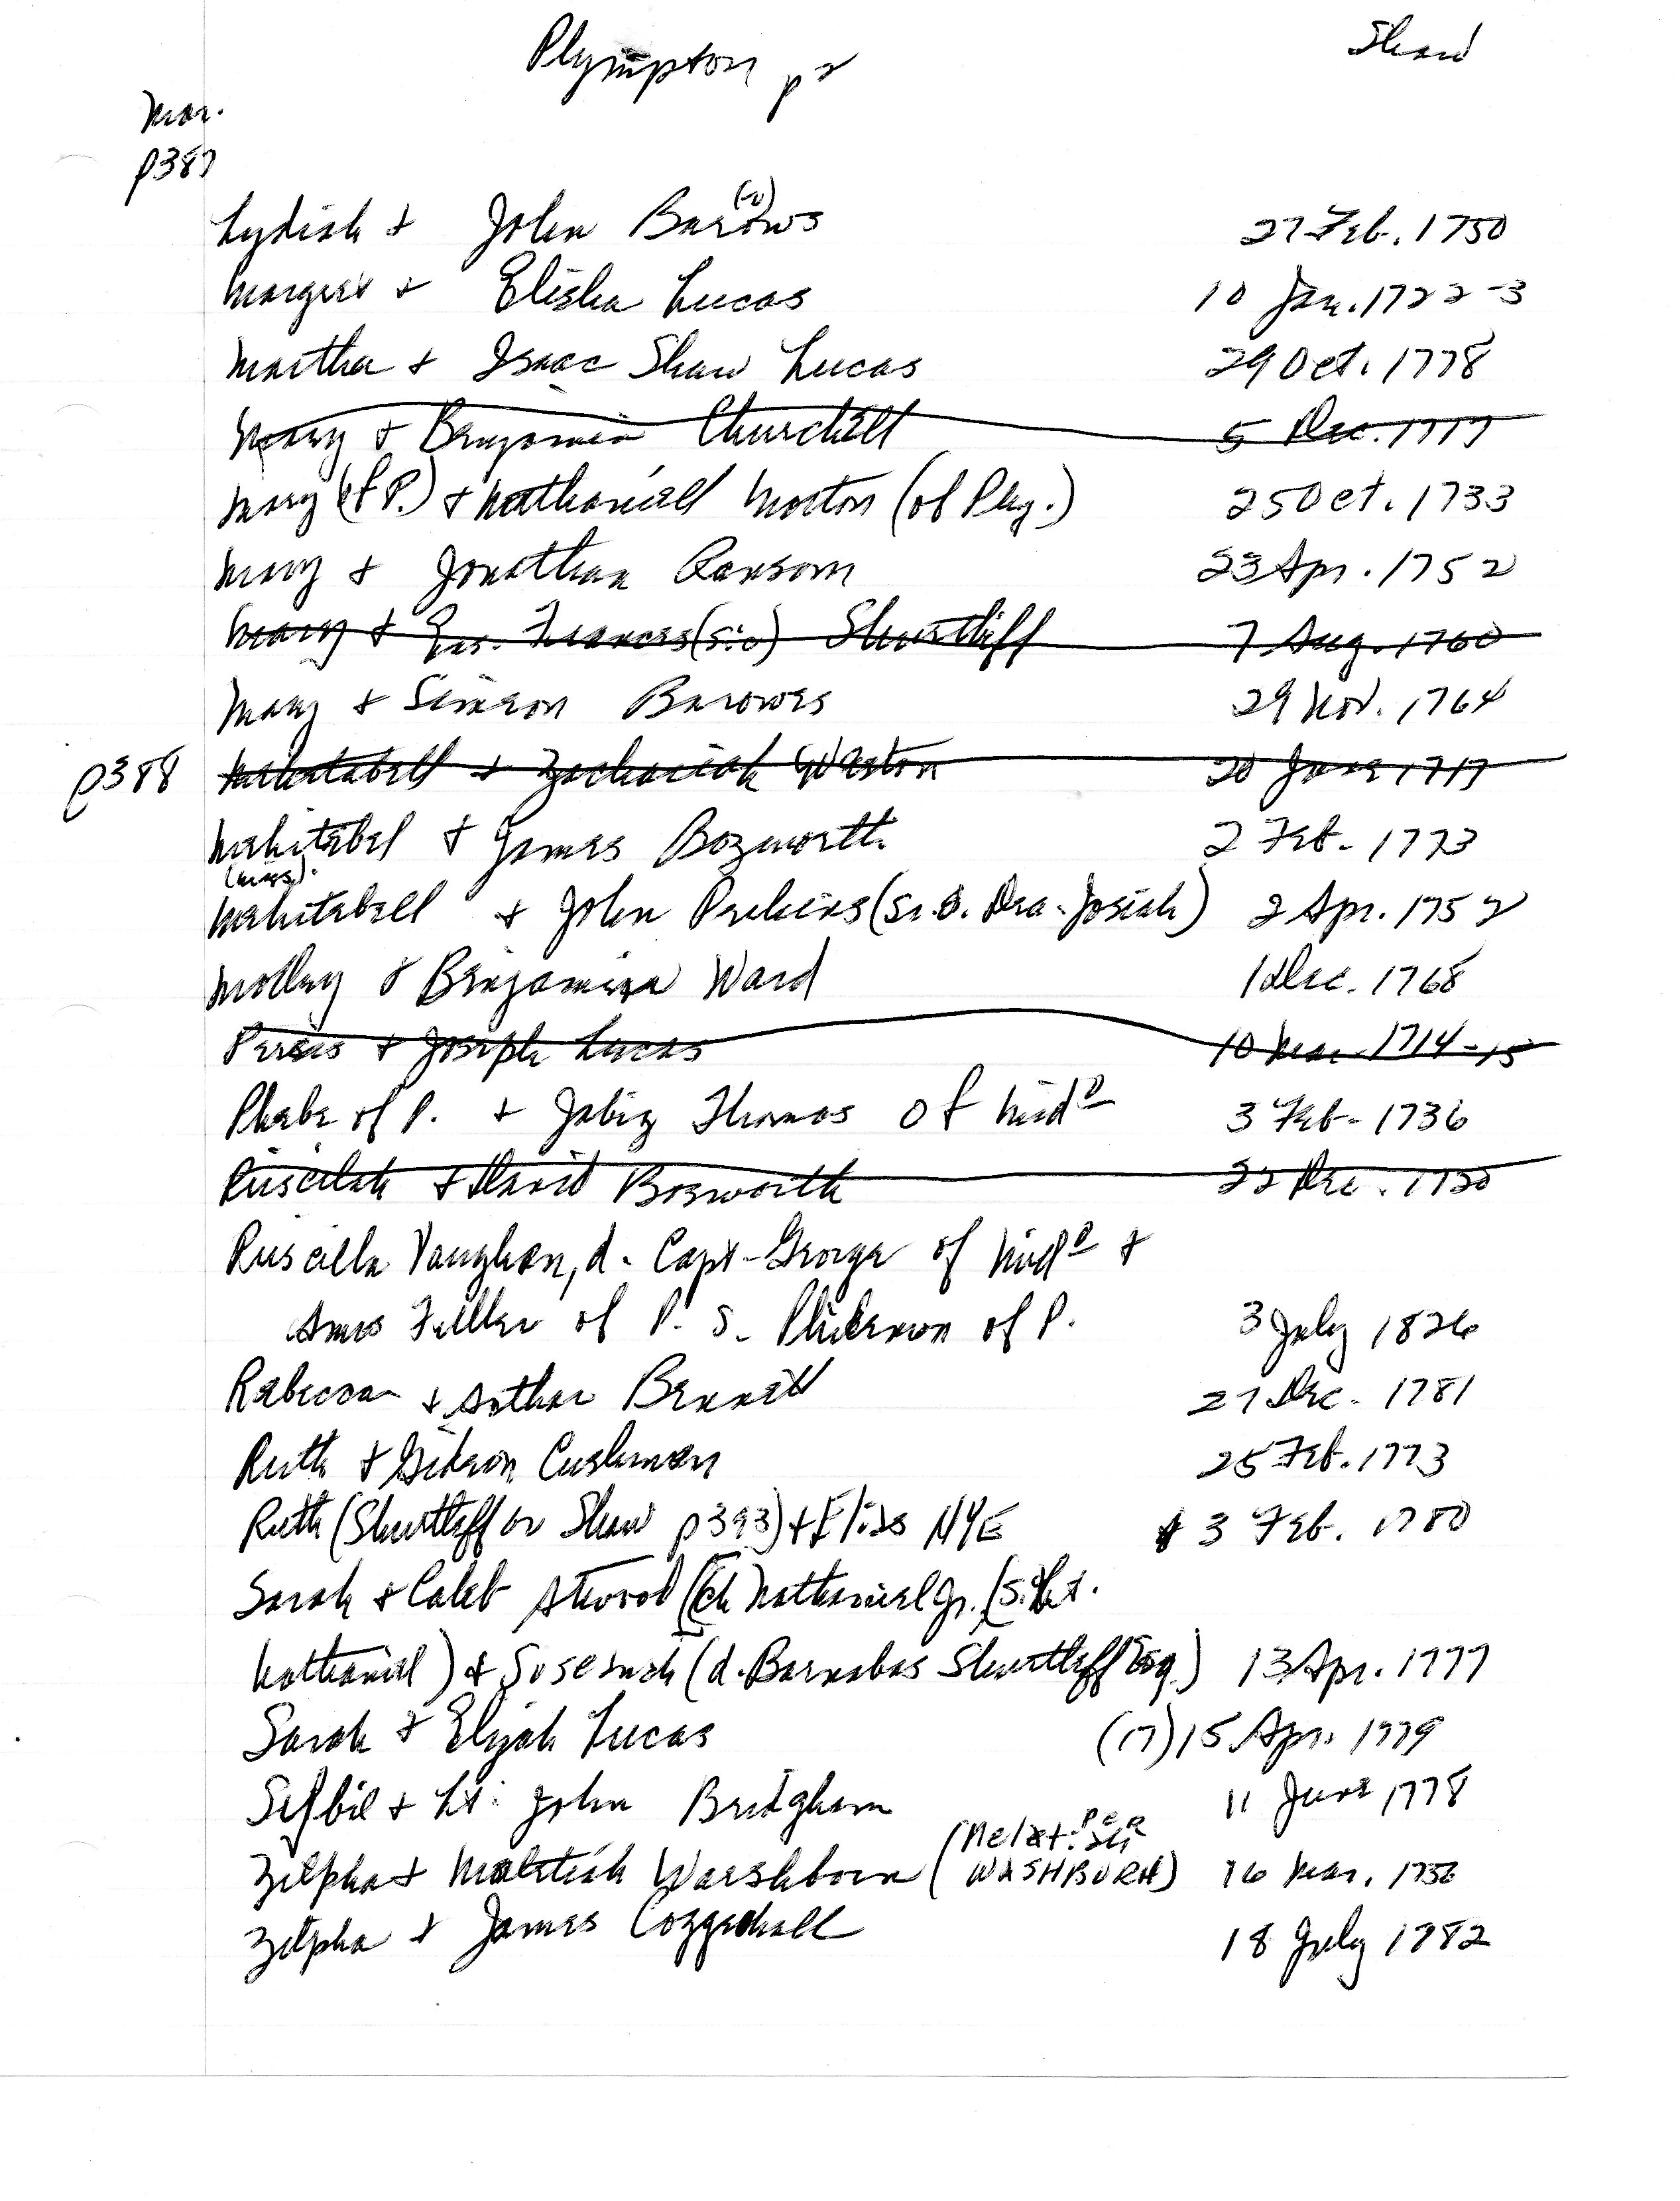 Plympton p2 Shaw
Mar.
p387
(w)
Lydiah + John Barows 27 Feb. 1750
Margret + Elisha Lucas 10 Jan. 1722-3
Martha + Isaac Shaw Lucas 29 Oct. 1778
Mary + Benjamin Churchill 5 Dec. 1717
Mary (of P.) + Nathaniell Morton (of Ply.) 25 Oct. 1733
Mary + Jonathan Ransom 23 Apr. 1752
Mary + Frances (sic) Shurtliff 7 Aug. 1760
Mary + Simeon Barowes 29 Nov. 1764
p388 Mehitabell + Zachariah Weston 20 June 1717
Mehitabel + James Bozworth 2 Feb. 1773
(Mrs.)
Mehitabell + John Perkins (s. Dea. Josiah) 2 Apr. 1752
Molley & Benjamin Ward 1 Dec. 1768
Persis + Joseph Lucas 10 Mar. 1714-15
Phebe of P. + Jabez Thomas of Midd 3 Feb. 1736
Priscilah + David Bosworth 22 Dec. 1730
Priscilla Vaughan, d. Capt. George of Midd +
Amos Fuller of P. S. Philemon of P. 3 July 1826
Rebecca + Arthur Bennett 27 Dec. 1781
Ruth + Gideon Cushman 25 Feb. 1773
Ruth (Shurtleff or Shaw p393) + Elias NYE 3 Feb. 1780
Sarah + Caleb Atwood (ch Nathaniel Jr. (s. Lt.
Nathaniel) + Susanah (d. Barnabas Shurtleff Esq.) 13 Apr. 1777
Sarah + Elijah Lucas (17) 15 Apr. 1779
Sylbil + Lt. John Bridgham 11 June 1778
Zilpha + Malatiah Warshborn (Melatiah WASHBURN) 16 Mar. 1756
Zilpha + James Coggeshall 18 July 1782